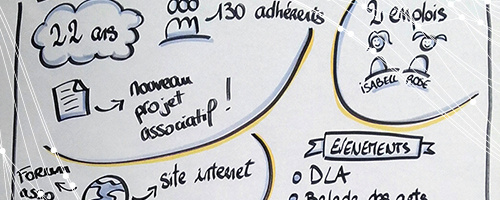 22 ans
130 adhérents
2 emplois
ISABELL ROSE
nouveau
projet
associatif !
Forum
asso
site internet
ÉVÉNEMENTS
DLA
Balade des arts